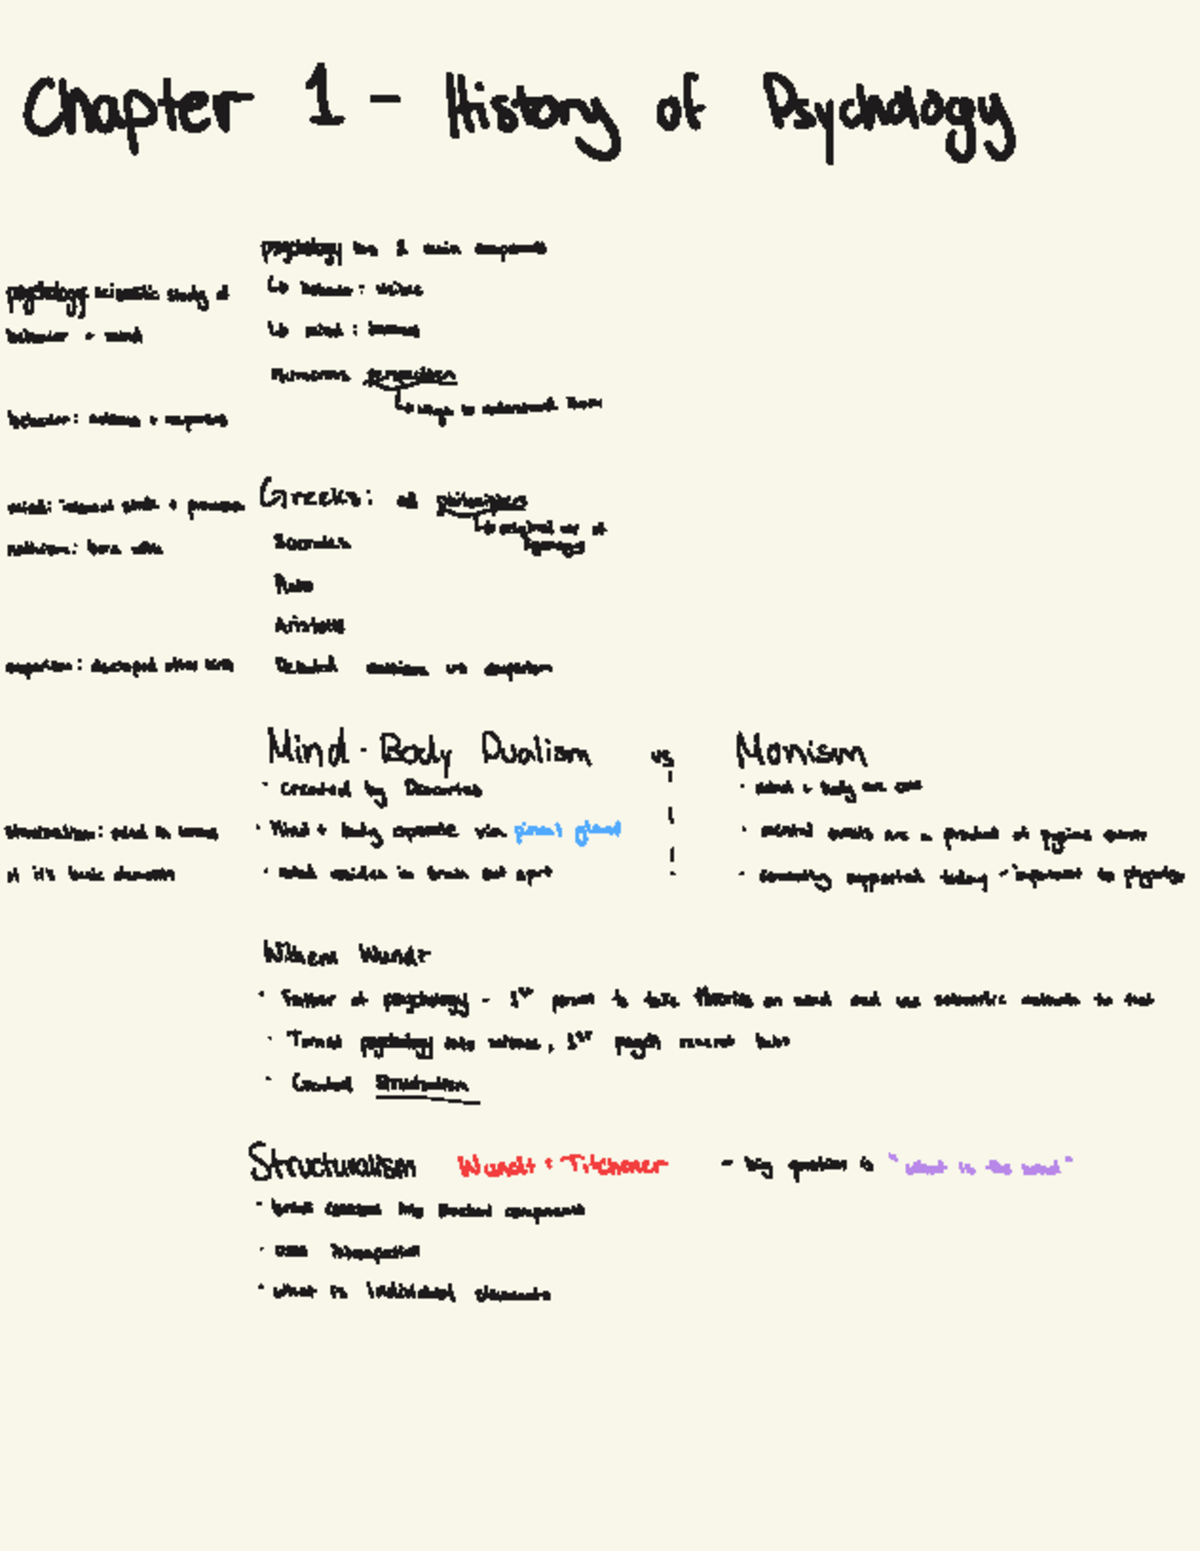 Chapter 1 - History of Psychology
psychology has 2 main components
psychology: scientific study of
↳ behavior: visible
behavior + mind
↳ mind:
Numerous perspectives
↳ ways to understand them
behavior: actions + responses
mind: internal states + processes
Greeks: all philosophers
↳ original use of
Socrates
nativism: born with
Plato
Aristotle
empiricism: developed after birth
Debated nativism vs empiricism
Mind-Body Dualism vs Monism
· created by Descartes
· mind + body are one
structuralism: mind in terms
· Mind + body operate via pineal gland
· mental events are a product of
of it's basic elements
· mind resides in brain but
· commonly supported today - important to
Wilhem Wundt
· Father of psychology - 1st person to take theories on mind and use scientific methods to test
· Turned psychology into science, 1st psych research lab
· Created Structuralism
Structuralism Wundt + Titchener - big question is "what is the mind"
· components
· uses introspection
· what is individual elements